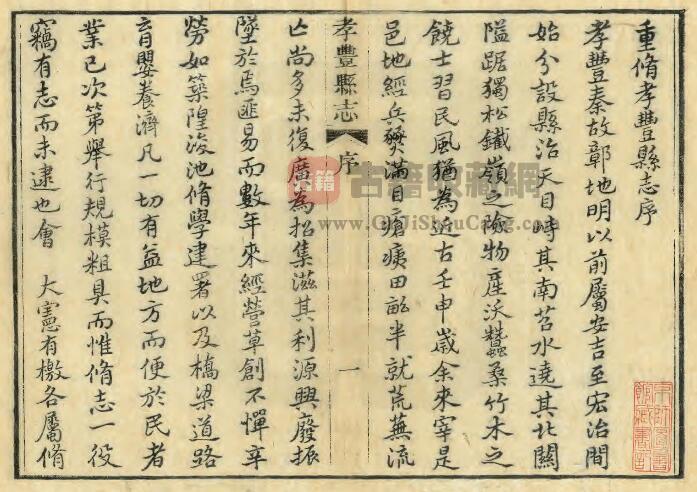 重脩孝豐縣志序
孝豐秦故鄣地明以前屬安吉至宏治間
始分設縣治天目峙其南苕水遶其北關
隘踞獨松鐵嶺之險物產沃蠶桑竹木之
饒士習民風猶為近古壬申歲余來宰是
邑地經兵燹滿目瘡痍田畝半就荒蕪流
孝豐縣志 序 一
亡尚多未復廣為招集滋其利源興廢振
墜於焉匪易而數年來經營草創不憚辛
勞如築隍浚池脩學建署以及橋梁道路
育嬰養濟凡一切有益地方而便於民者
業已次第舉行規模粗具而惟脩志一役
竊有志而未逮也會 大憲有檄各屬脩
古籍
古籍收藏網
www.GuJiShouCang.com